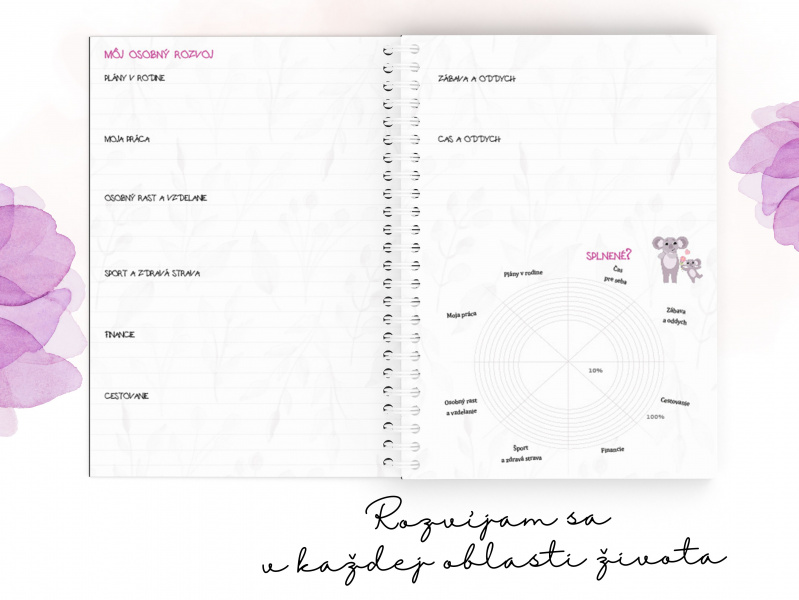 MÔJ OSOBNÝ ROZVOJ
PLÁNY V RODINE
MOJA PRÁCA
OSOBNÝ RAST A VZDELANIE
SPORT A ZDRAVÁ STRAVA
FINANCIE
CESTOVANIE
ZÁBAVA A ODDYCH
CAS A ODDYCH
SPLNENÉ?
Plány v rodine
Čas
pre seba
Moja práca
Zábava
a oddych
10%
Osobný rast
a vzdelanie
Cestovanie
100%
Šport
a zdravá strava
Financie
Rozvíjam sa
v každej oblasti života